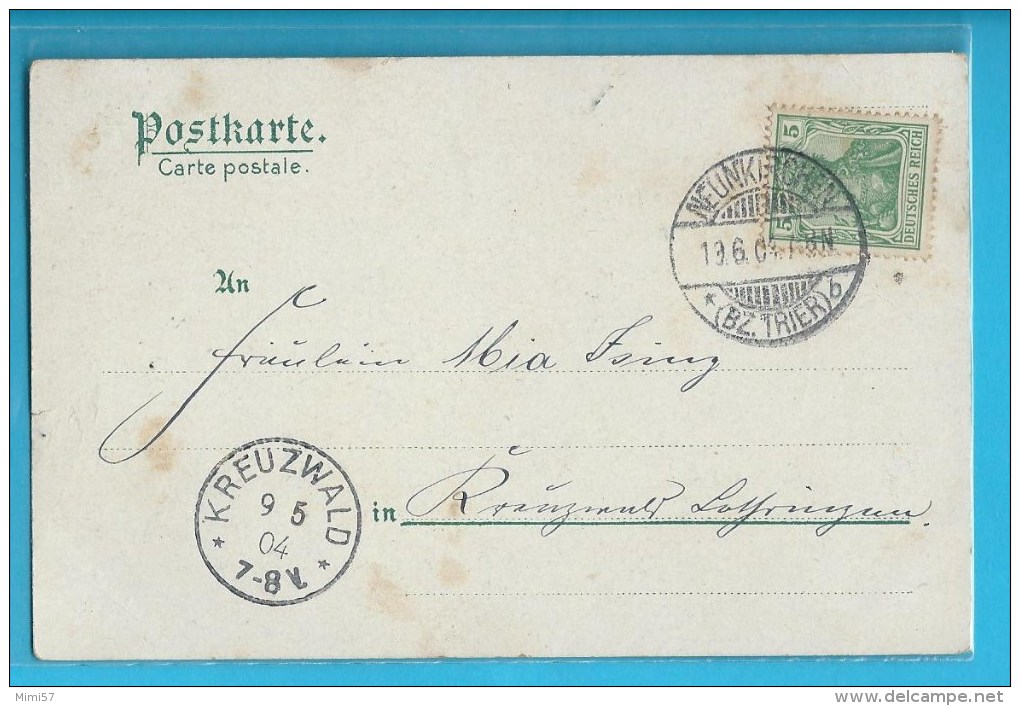 Postkarte.
Carte postale.
5
5
DEUTSCHES REICH
NEUNKIRCHEN
19.6.04. 7-8N
* (BZ. TRIER) b
An
Fräulein Mia Ising
* KREUZWALD *
9 5
04
7-8 V.
in Kreuzwald Lothringen.
Mimi57
www.delcampe.net